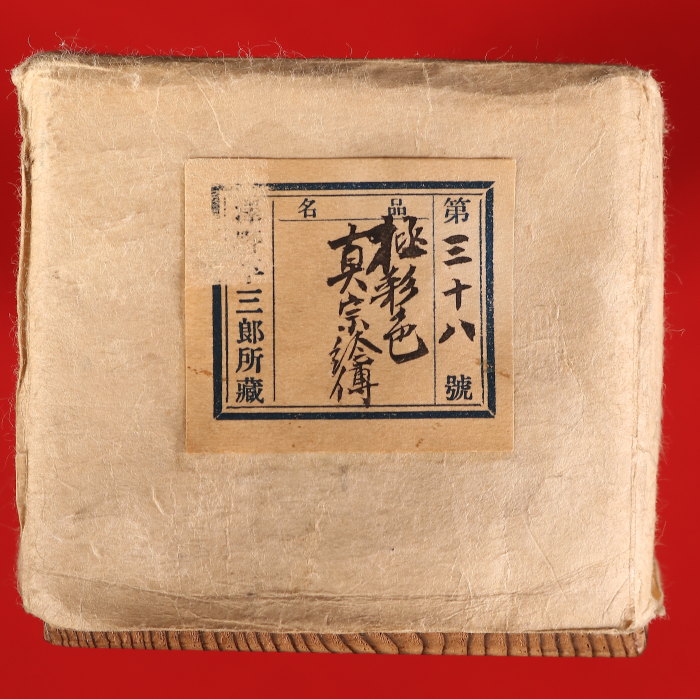 第三十八號
品名
極彩色
真宗絵傳
三郎所藏